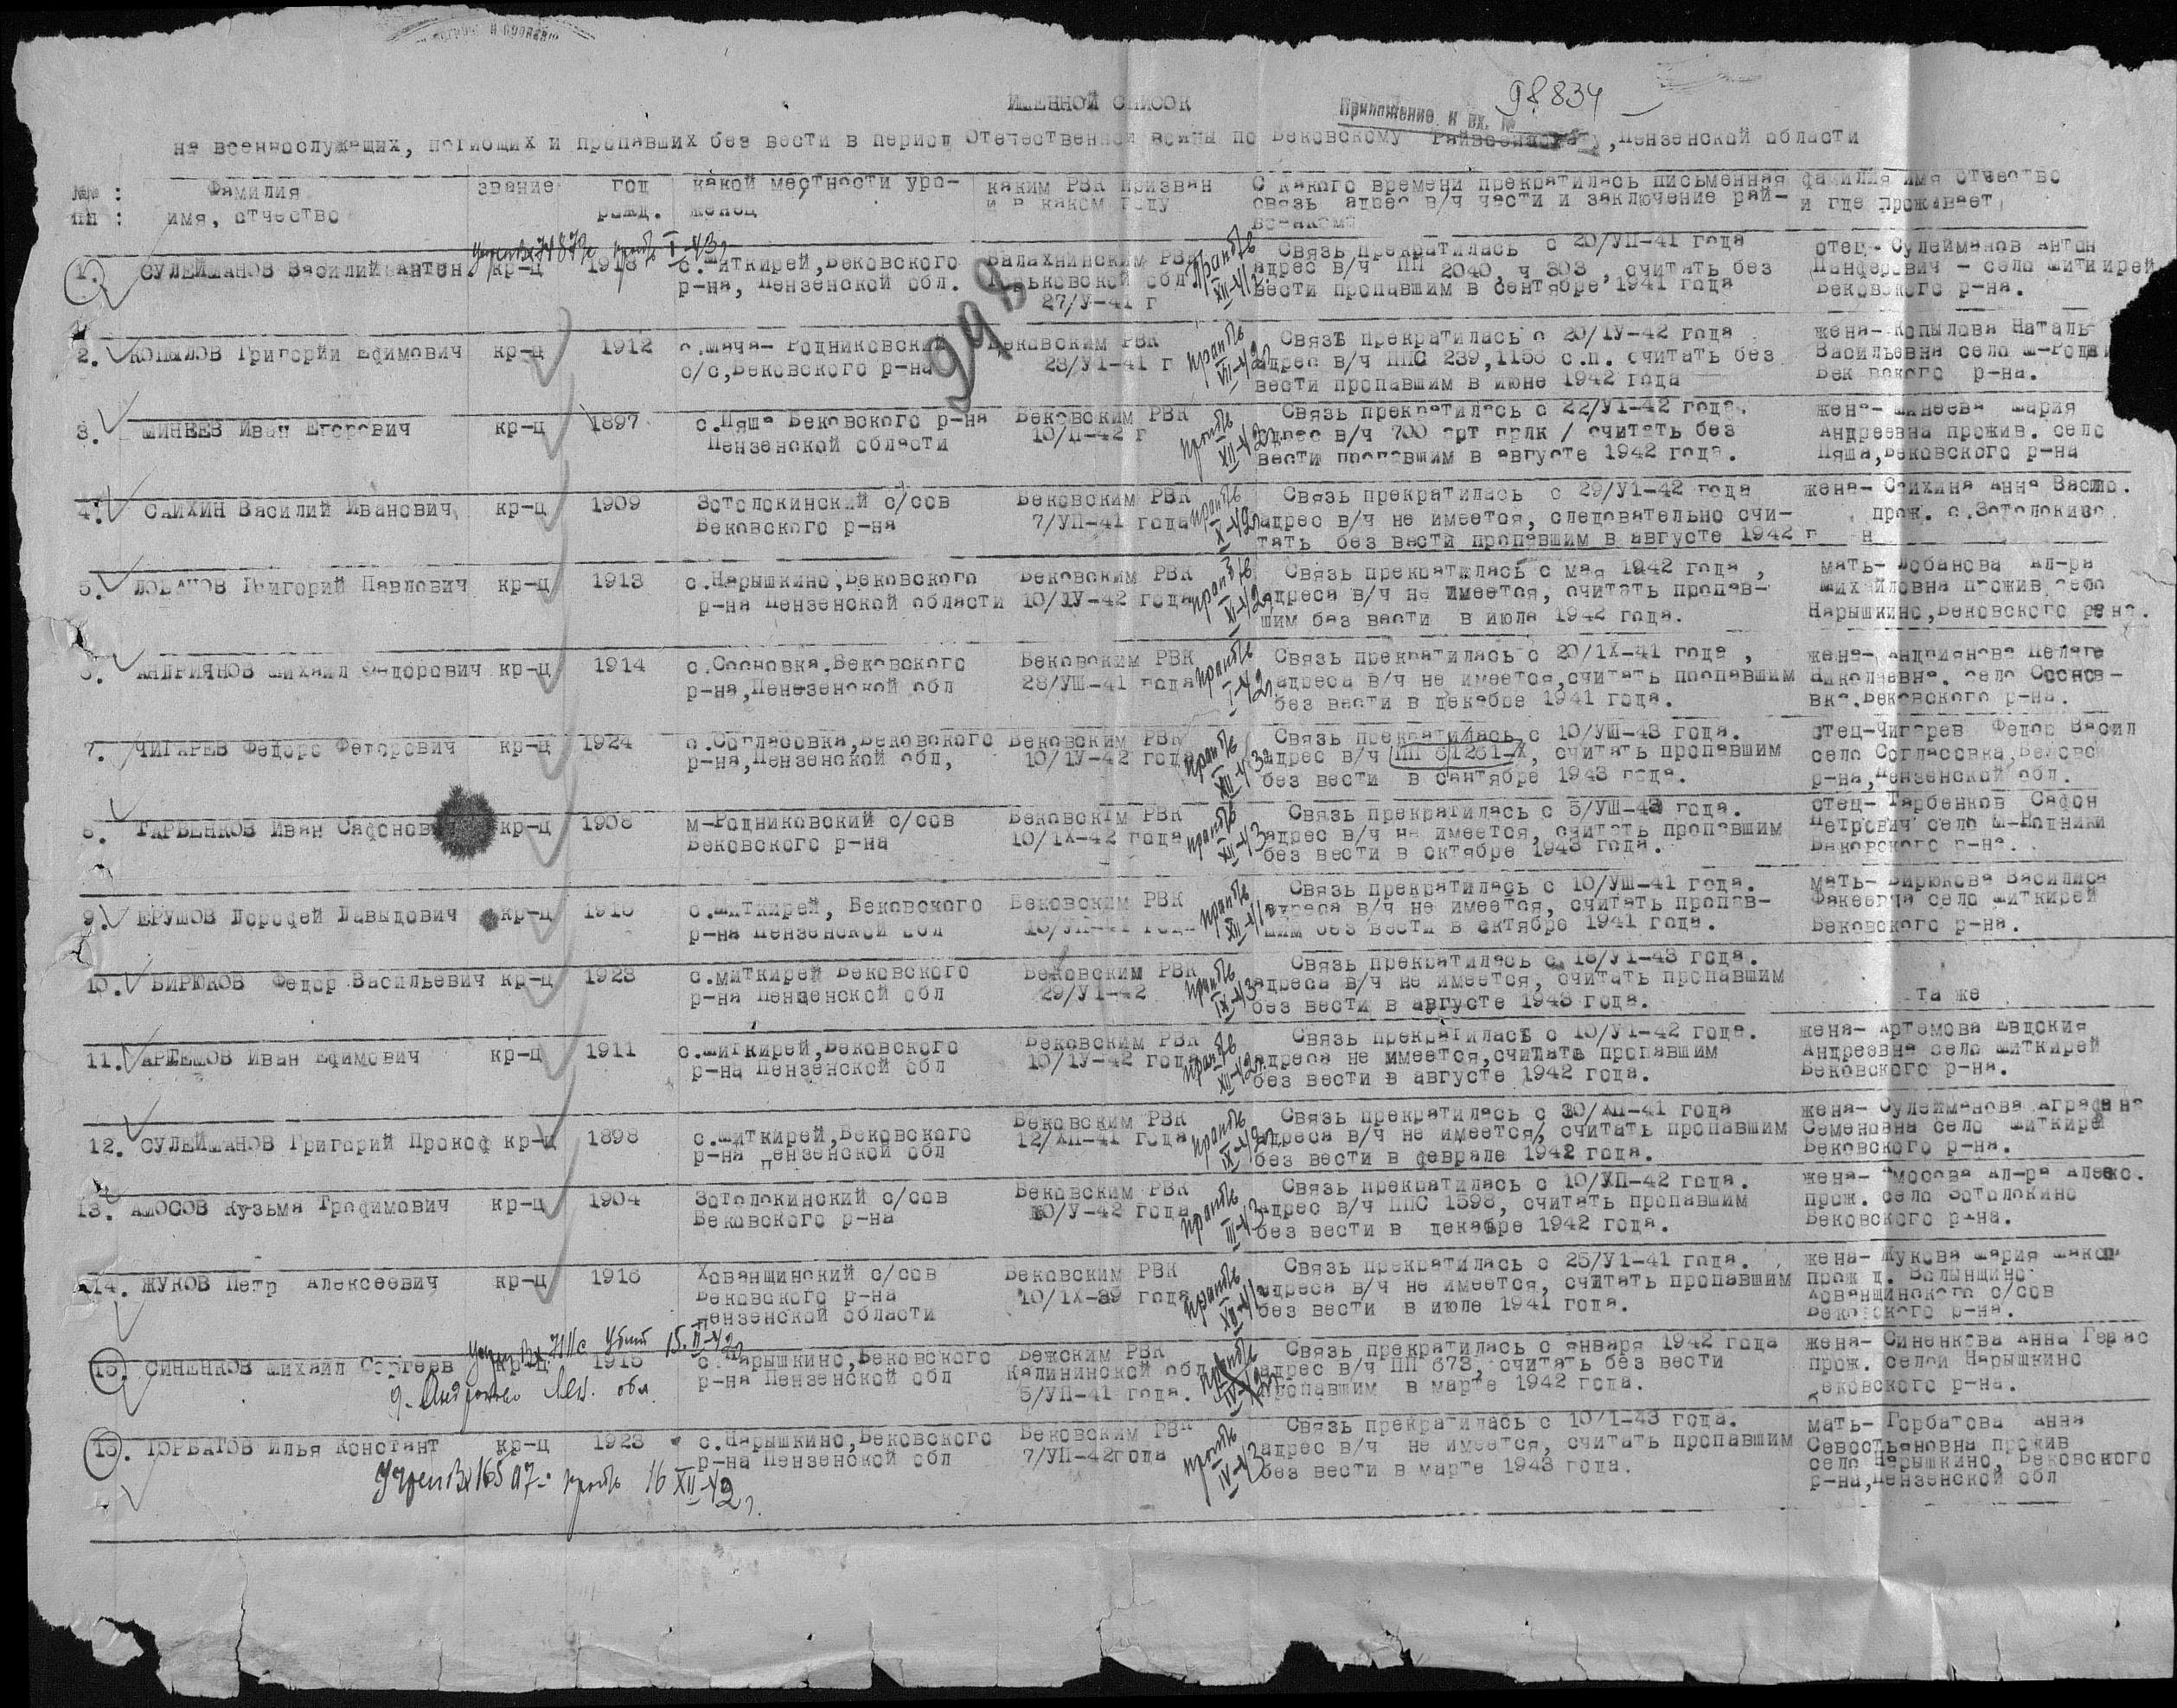 98834
ИМЕННОЙ СПИСОК
Приложение к вх. №
на военнослужащих, погибших и пропавших без вести в период Отечественной войны по Бековскому Райвоенкомату, Пензенской области
№№ : Фамилия звание год какой местности уро- каким РВК призван С какого времени прекратилась письменная фамилия имя отчество
пп : имя, отчество рожд. женец и в каком году связь адрес в/ч части и заключение рай- и где проживает
военкома
1. СУЛЕЙМАНОВ Василий Антон кр-ц 1918 с.Миткирей,Бековского Балахнинским РВК Связь прекратилась с 20/УП-41 года отец- Сулейманов Антон
р-на, Пензенской обл. Горьковской обл адрес в/ч ПП 2040, ч 303, считать без Панферович - село Миткирей
27/У-41 г вести пропавшим в сентябре 1941 года Бековского р-на.
998
2. КОПЫЛОВ Григорий Ефимович кр-ц 1912 с.Мача- Родниковский Бековским РВК Связь прекратилась с 20/1У-42 года жена- Копылова Наталь
с/с,Бековского р-на 23/У1-41 г адрес в/ч ППС 239,1158 с.п. считать без Васильевна село М-Родни
вести пропавшим в июне 1942 года Бековского р-на.
3. МИНЕЕВ Иван Егорович кр-ц 1897 с.Пяша Бековского р-на Бековским РВК Связь прекратилась с 22/У1-42 года. жена- Минеева Мария
Пензенской области 10/П-42 г адрес в/ч 700 арт полк / считать без Андреевна прожив. село
вести пропавшим в августе 1942 года. Пяша,Бековского р-на
4. САИХИН Василий Иванович кр-ц 1909 Зотолокинский с/сов Бековским РВК Связь прекратилась с 29/У1-42 года жена- Саихина Анна
Бековского р-на 7/УП-41 года адрес в/ч не имеется, следовательно счи- прож. с.Зотолокино
тать без вести пропавшим в августе 1942 г
5. ЛОБАНОВ Григорий Павлович кр-ц 1913 с.Нарышкино,Бековского Бековским РВК Связь прекратилась с мая 1942 года , мать- Лобанова Ал-ра
р-на Пензенской области 10/1У-42 года адреса в/ч не имеется, считать пропав- Михайловна прожив село
шим без вести в июле 1942 года. Нарышкино,Бековского р-на.
6. АНДРИЯНОВ Михаил Федорович кр-ц 1914 с.Сосновка,Бековского Бековским РВК Связь прекратилась с 20/1Х-41 года , жена- Андриянова Пелаге
р-на,Пенезенской обл 28/УШ-41 года адреса в/ч не имеется,считать пропавшим Николаевна. село Соснов-
без вести в декабре 1941 года. вка.Бековского р-на.
7. ЧИГАРЕВ Федоро Федорович кр-ц 1924 с.Согласовка,Бековского Бековским РВК Связь прекратилась с 10/УШ-43 года. отец-Чигарев Федор Васил
р-на,Пензенской обл, 10/1У-42 года адрес в/ч ПП 61261-Х, считать пропавшим село Согласовка,Бековс
без вести в сентябре 1943 года. р-на,Пензенской обл.
8. ТАРБЕНКОВ Иван Сафонович кр-ц 1908 М-Родниковский с/сов Бековским РВК Связь прекратилась с 5/УШ-43 года. отец- Тарбенков Сафон
Бековского р-на 10/1Х-42 года адрес в/ч не имеется, считать пропавшим Петрович село М-Родники
без вести в октябре 1943 года. Бековского р-на.
9. ЕРУШОВ Дорофей Давыдович кр-ц с.Миткирей, Бековского Бековским РВК Связь прекратилась с 10/УШ-41 года. мать- Бирюкова Василиса
р-на Пензенской обл адреса в/ч не имеется, считать пропав- Факеевна село Миткирей
шим без вести в октябре 1941 года. Бековского р-на.
10. БИРЮКОВ Федор Васильевич кр-ц 1923 с.Миткирей Бековского Бековским РВК Связь прекратилась с 18/У1-43 года.
р-на Пензенской обл 29/У1-42 адреса в/ч не имеется, считать пропавшим
без вести в августе 1943 года. та же
11. АРТЕМОВ Иван Ефимович кр-ц 1911 с.Миткирей,Бековского Бековским РВК Связь прекратилась с 10/У1-42 года. жена- Артемова Евдокия
р-на Пензенской обл 10/1У-42 года адреса не имеется,считать пропавшим Андреевна село Миткирей
без вести в августе 1942 года. Бековского р-на.
12. СУЛЕЙМАНОВ Григорий Прокоф кр-ц 1898 с.Миткирей,Бековского Бековским РВК Связь прекратилась с 30/ХП-41 года жена- Сулейманова Аграфена
р-на Пензенской обл 12/ХП-41 года адреса в/ч не имеется, считать пропавшим Семеновна село Миткирей
без вести в феврале 1942 года. Бековского р-на.
13. АМОСОВ Кузьма Трофимович кр-ц 1904 Зотолокинский с/сов Бековским РВК Связь прекратилась с 10/ХП-42 года. жена- Амосова Ал-ра Алекс.
Бековского р-на 10/У-42 года адрес в/ч ППС 1598, считать пропавшим прож. село Зотолокино
без вести в декабре 1942 года. Бековского р-на.
14. ЖУКОВ Петр Алексеевич кр-ц 1916 Хованщинский с/сов Бековским РВК Связь прекратилась с 25/У1-41 года. жена- Жукова Мария
Бековского р-на 10/1Х-39 года адреса в/ч не имеется, считать пропавшим прож д. Волынщино
Пензенской области без вести в июле 1941 года. Хованщинского с/сов
Бековского р-на.
15. СИНЕНКОВ Михаил Сергеев кр-ц 1915 с.Нарышкино,Бековского Бежским РВК Связь прекратилась с января 1942 года жена- Синенкова Анна Герас
р-на Пензенской обл Калининской обл адрес в/ч ПП 673, считать без вести прож. селои Нарышкино
5/УП-41 года. пропавшим в марте 1942 года. Бековского р-на.
16. ГОРБАТОВ Илья Констант кр-ц 1923 с.Нарышкино,Бековского Бековским РВК Связь прекратилась с 10/1-43 года. мать- Горбатова Анна
р-на Пензенской обл 7/УП-42года адрес в/ч не имеется, считать пропавшим Севостьяновна прожив
без вести в марте 1943 года. село Нарышкино, Бековского
р-на,Пензенской обл